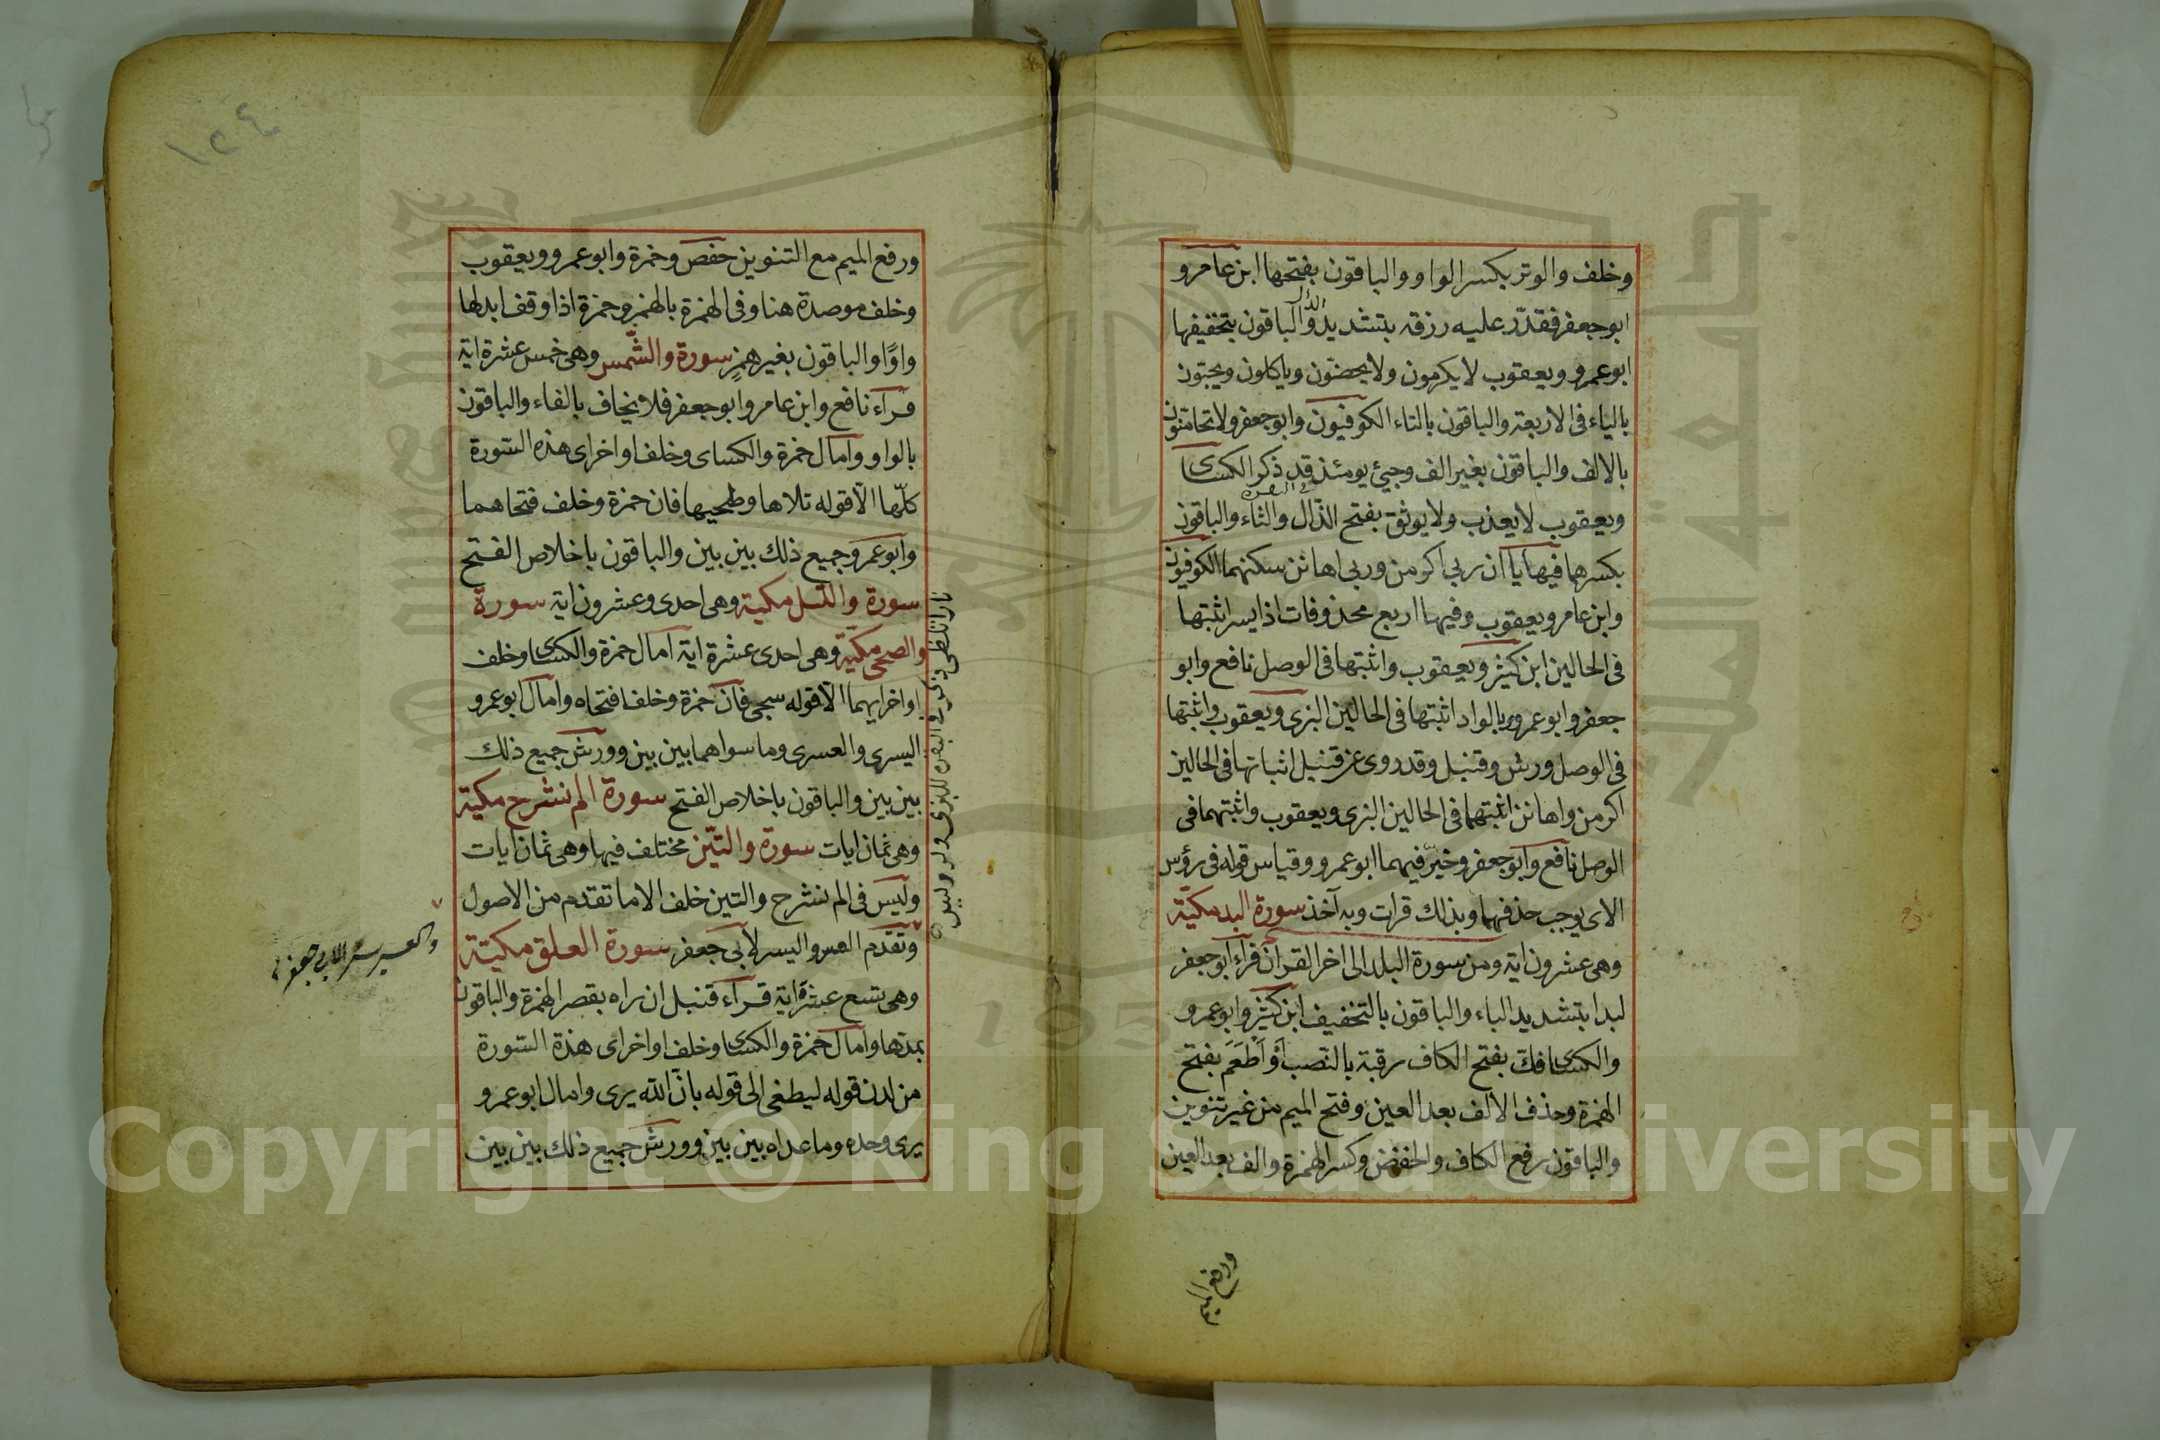 وخلف والوتر بكسر الواو والباقون بفتحها ابن عامر و
ابوجعفر فقدّر عليه رزقه بتشديد الدال والباقون بتخفيفها
ابوعمرو ويعقوب لا يكرمون ولا يحضّون وياكلون ويحبّون
بالياء فى الاربعة والباقون بالتاء الكوفيون وابوجعفر ولا تحاضّون
بالالف والباقون بغير الف وجئ يومئذ قد ذكر الكساى
فى البقرة
ويعقوب لا يعذب ولا يوثق بفتح الذّال والثاء والباقون
بكسرهما فيها يا آن ربى اكرمن وربى اهانن سكنهما الكوفيون
وابن عامر ويعقوب وفيها اربع محذوفات اذا يسر اثبتها
فى الحالين ابن كثير ويعقوب واثبتها فى الوصل نافع وابو
جعفر وابوعمرو بالواد اثبتها فى الحالين البزى ويعقوب واثبتها
فى الوصل ورش وقنبل وقد روى عن قنبل اثباتها فى الحالين
اكرمن واهانن اثبتهما فى الحالين البزى ويعقوب واثبتهما فى
الوصل نافع وابوجعفر وخيّر فيهما ابوعمرو وقياس قوله فى رؤس
الاى يوجب حذفهما وبذلك قرات وبه آخذ سورة البلد مكيّة
وهى عشرون اية ومن سورة البلد الى اخر القران قرأ ابوجعفر
لبدا بتشديد الباء والباقون بالتخفيف ابن كثير وابوعمرو
والكساى فكّ بفتح الكاف رقبة بالنّصب أَوْ أَطْعَمَ بفتح
الهمزة وحذف الالف بعد العين وفتح الميم من غير تنوين
والباقون رفع الكاف والخفض وكسر الهمزة والف بعد العين
ورفع الميم
١٥٤
ورفع الميم مع التنوين حفص وحمزة وابوعمرو ويعقوب
وخلف موصدة هنا وفى الهمزة بالهمز وحمزة اذا وقف ابدلها
واوًا والباقون بغير همزٍ سورة والشّمس وهى خمس عشرة اية
قرأ نافع وابن عامر وابوجعفر فلا يخاف بالفاء والباقون
بالواو وامال حمزة والكساى وخلف اواخر اى هذه السّورة
كلّها الّا قوله تلاها وطحيها فان حمزة وخلف فتحاهما
وابوعمرو جميع ذلك بين بين والباقون باخلاص الفتح
سورة والّيل مكية وهى احدى وعشرون اية سورة
والضحى مكيّة وهى احدى عشرة اية امال حمزة والكساى وخلف
اواخر ايهما الّا قوله سجى فان حمزة وخلفا فتحاه وامال ابوعمرو
اليسرى والعسرى وما سواهما بين بين وورش جميع ذلك
بين بين والباقون باخلاص الفتح سورة الم نشرح مكية
وهى ثمان ايات سورة والتّين مختلف فيها وهى ثمان ايات
وليس فى الم نشرح والتين خلف الا ما تقدم من الاصول
وتقدم العسر واليسر لابى جعفر سورة العلق مكيّة
وهى تسع عشرة اية قرأ قنبل ان راه بقصر الهمزة والباقون
بمدّها وامال حمزة والكساى وخلف اواخر اى هذة السّورة
من لدن قوله ليطغى الى قوله بانّ الله يرى وامال ابوعمرو
يرى وحده وما عداه بين بين وورش جميع ذلك بين بين
نارا تلظى ذكر فى البقرة للبزى